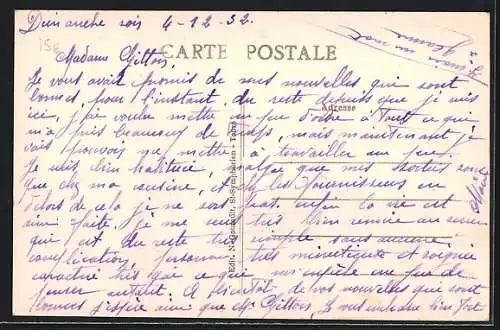 Dimanche soir 4-12-32.
15€
CARTE POSTALE
Madame Gittois,
Je vous avait promis de nos nouvelles qui sont
bonnes, pour l'instant, du reste depuis que je suis
Adresse
ici, j'ai voulu mettre un peu d'ordre à tout ce qui
m'a pris beaucoup de temps, mais maintenant je
vais pouvoir me mettre à travailler un peu.
Je suis bien habituée, malgré que mes sorties sont
que chez ma cousine, et chez les fournisseurs en
dehors de cela je ne sors pas. Enfin la vie est
ainsi faite, je me suis très bien
qui est du reste très simple sans aucune
complication, personnes très et soignée
très gai ce que me un peu de
penser autant. A bientôt de vos nouvelles qui sont
bonnes j'espère ainsi que Mr Gittois. Je vous embrasse bien fort
Edit. N. St-Symphorien - Tours